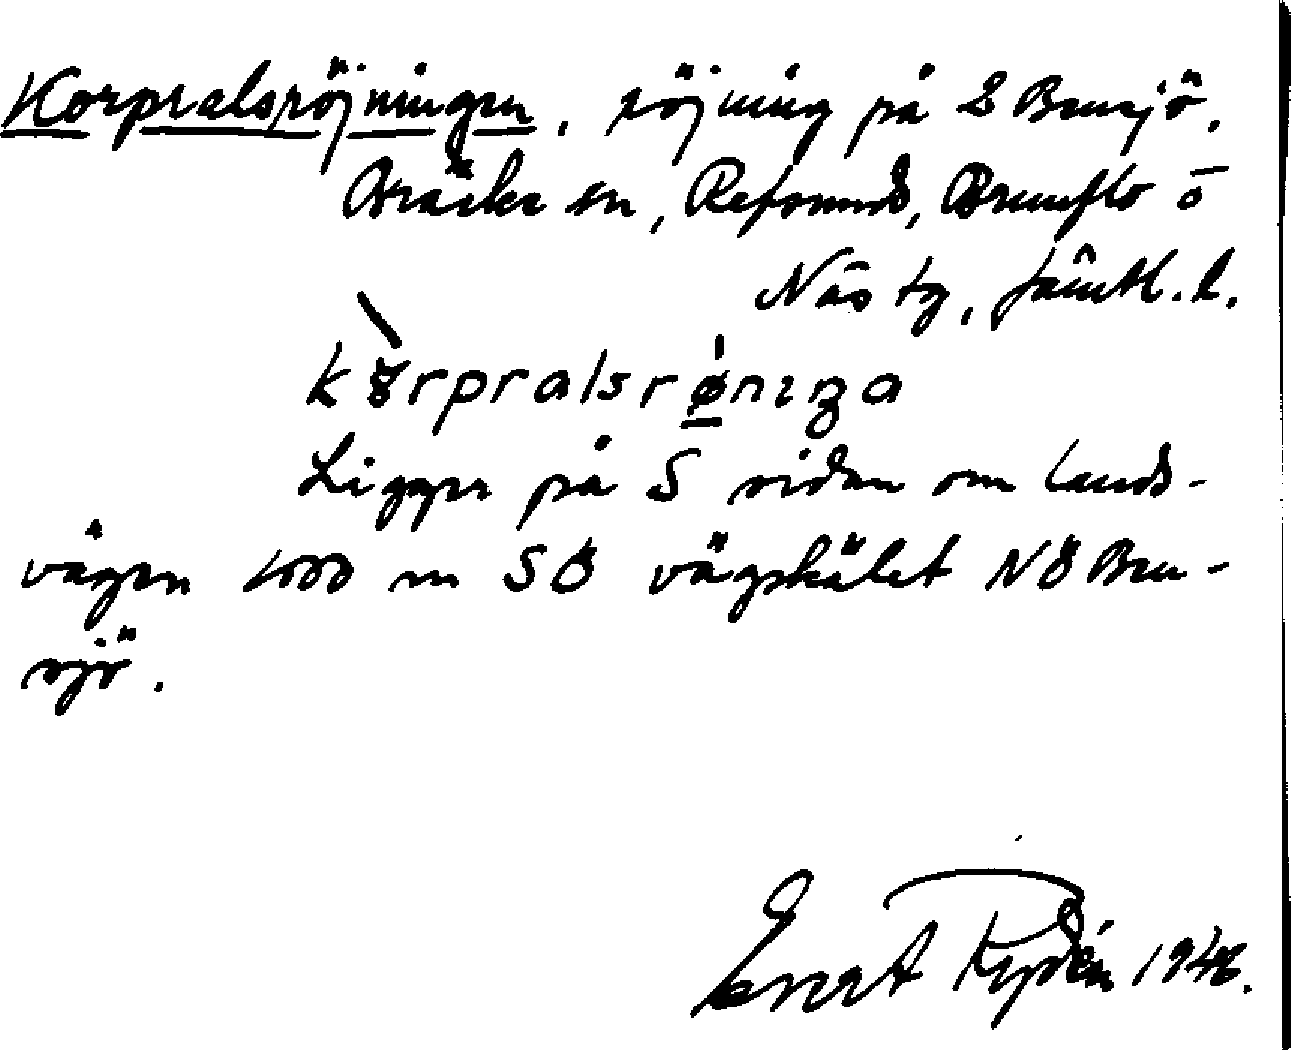 Korpralsröjningen, röjning på 2 Bensjö,
Bräcke sn, Refsunds, Brunflo o
Näs tg, Jämtl. l.
Ligger på S sidan om lands-
vägen 1000 m SÖ vägskälet NÖ Ben-
sjö.
Ernst Rydén 1946.